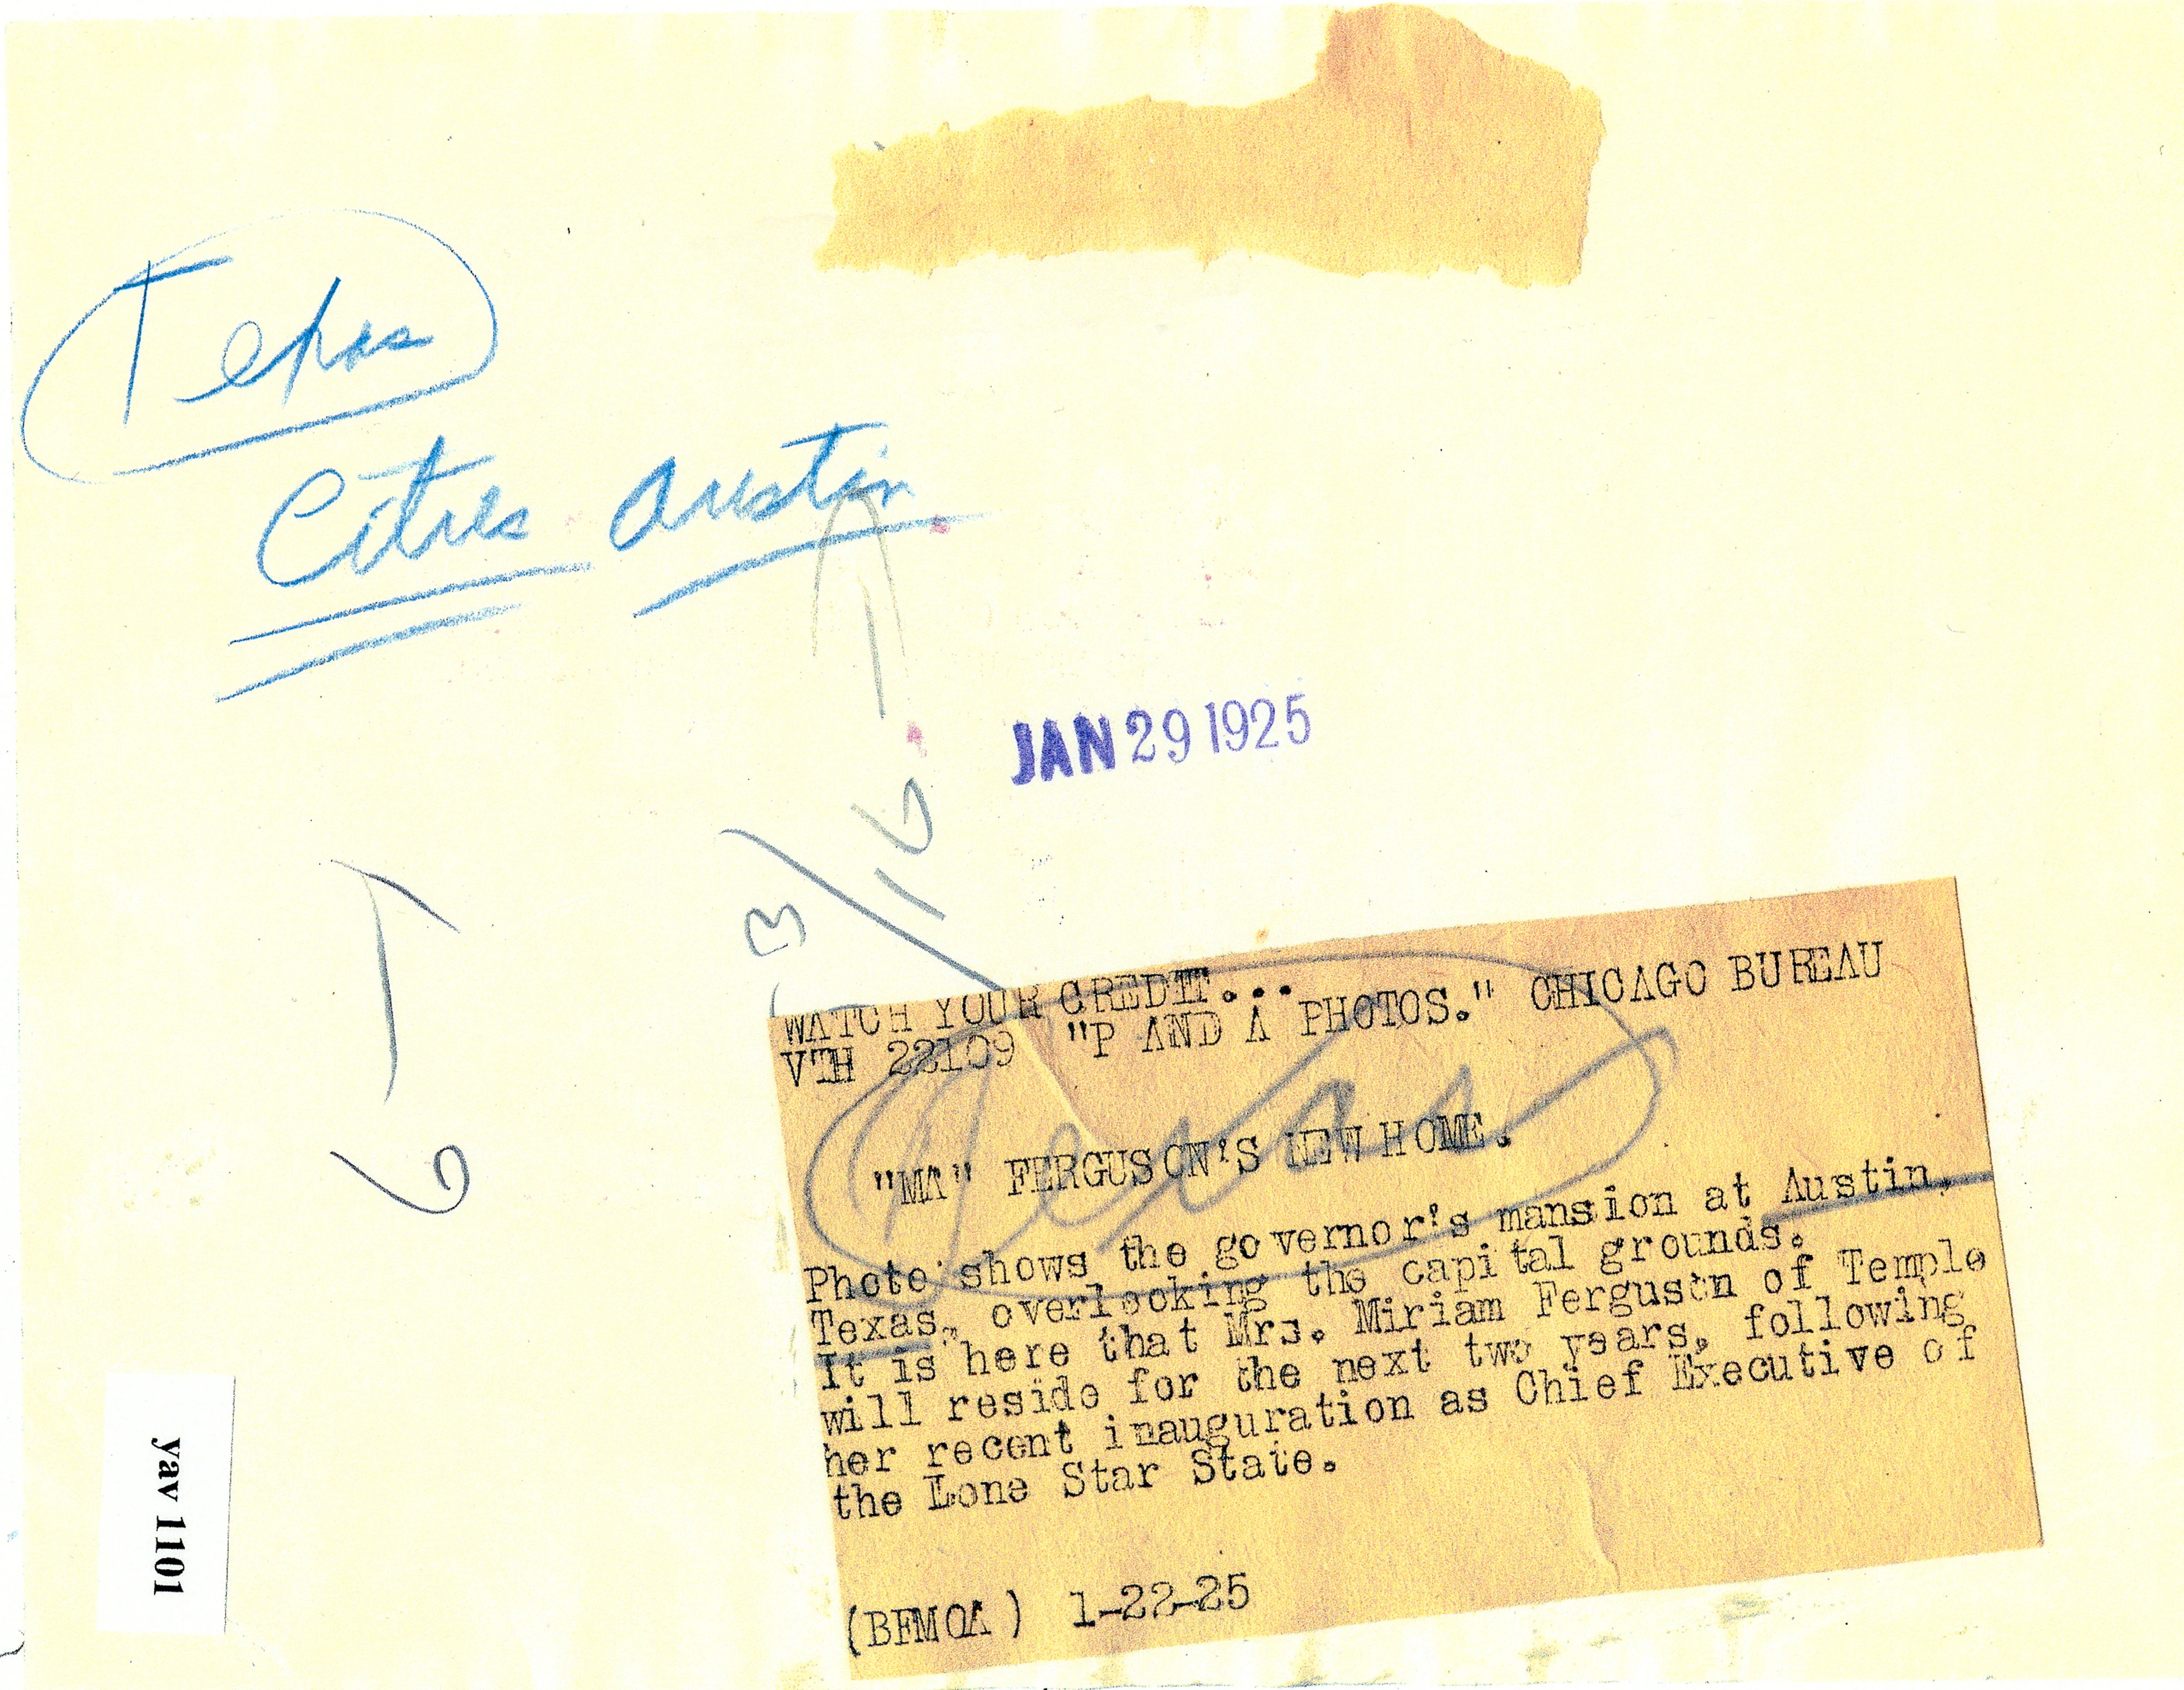 Texas
Cities Austin
JAN 29 1925
3/16
WATCH YOUR CREDIT...
VTH 22109 "P AND A PHOTOS." CHICAGO BUREAU
Texas
"MA" FERGUSON'S NEW HOME.
Photo shows the governor's mansion at Austin,
Texas, overlooking the capital grounds.
It is here that Mrs. Miriam Ferguson of Temple
will reside for the next two years, following
her recent inauguration as Chief Executive of
the Lone Star State.
(BFMOA) 1-22-25
yav 1101